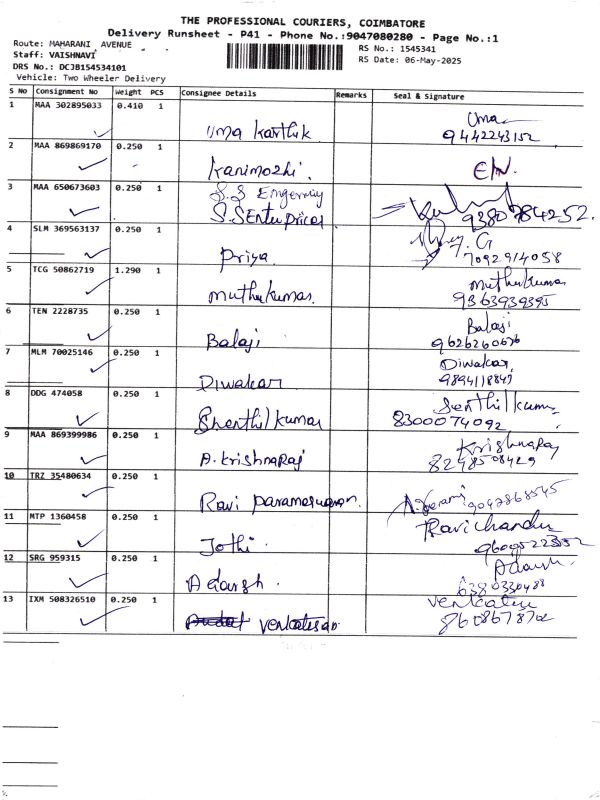 THE PROFESSIONAL COURIERS, COIMBATORE
Delivery Runsheet - P41 - Phone No.:9047080280 - Page No.:1
Route: MAHARANI AVENUE
Staff: VAISHNAVI
DRS No.: DCJB154534101
Vehicle: Two Wheeler Delivery
RS No.: 1545341
RS Date: 06-May-2025
S No Consignment No Weight PCS Consignee Details Remarks Seal & Signature
1 MAA 302895033 0.410 1 Uma Karthik Uma
9442243152
2 MAA 869869170 0.250 1 Kanimozhi.
3 MAA 650673603 0.250 1 S.S Engerniy
S.S Enterprices 9380784252.
4 SLM 369563137 0.250 1 Priya G
7092914058
5 TCG 50862719 1.290 1 Muthukumar. Muthukumar
9363939395
6 TEN 2228735 0.250 1 Balaji Balaji
9626260676
7 MLM 70025146 0.250 1 Diwakar Diwakar
9894118847
8 DDG 474058 0.250 1 Shenthilkumar Senthilkumar
8300074092
9 MAA 869399986 0.250 1 A. Krishnaraj Krishnaraj
8248508429
10 TRZ 35480634 0.250 1 Ravi Parameswaran. 9047868545
11 MTP 1360458 0.250 1 Jothi. Ravichandran
12 SRG 959315 0.250 1 Adarsh. Adarsh.
6380330488
13 IXM 508326510 0.250 1 Venkatesan Venkatesh